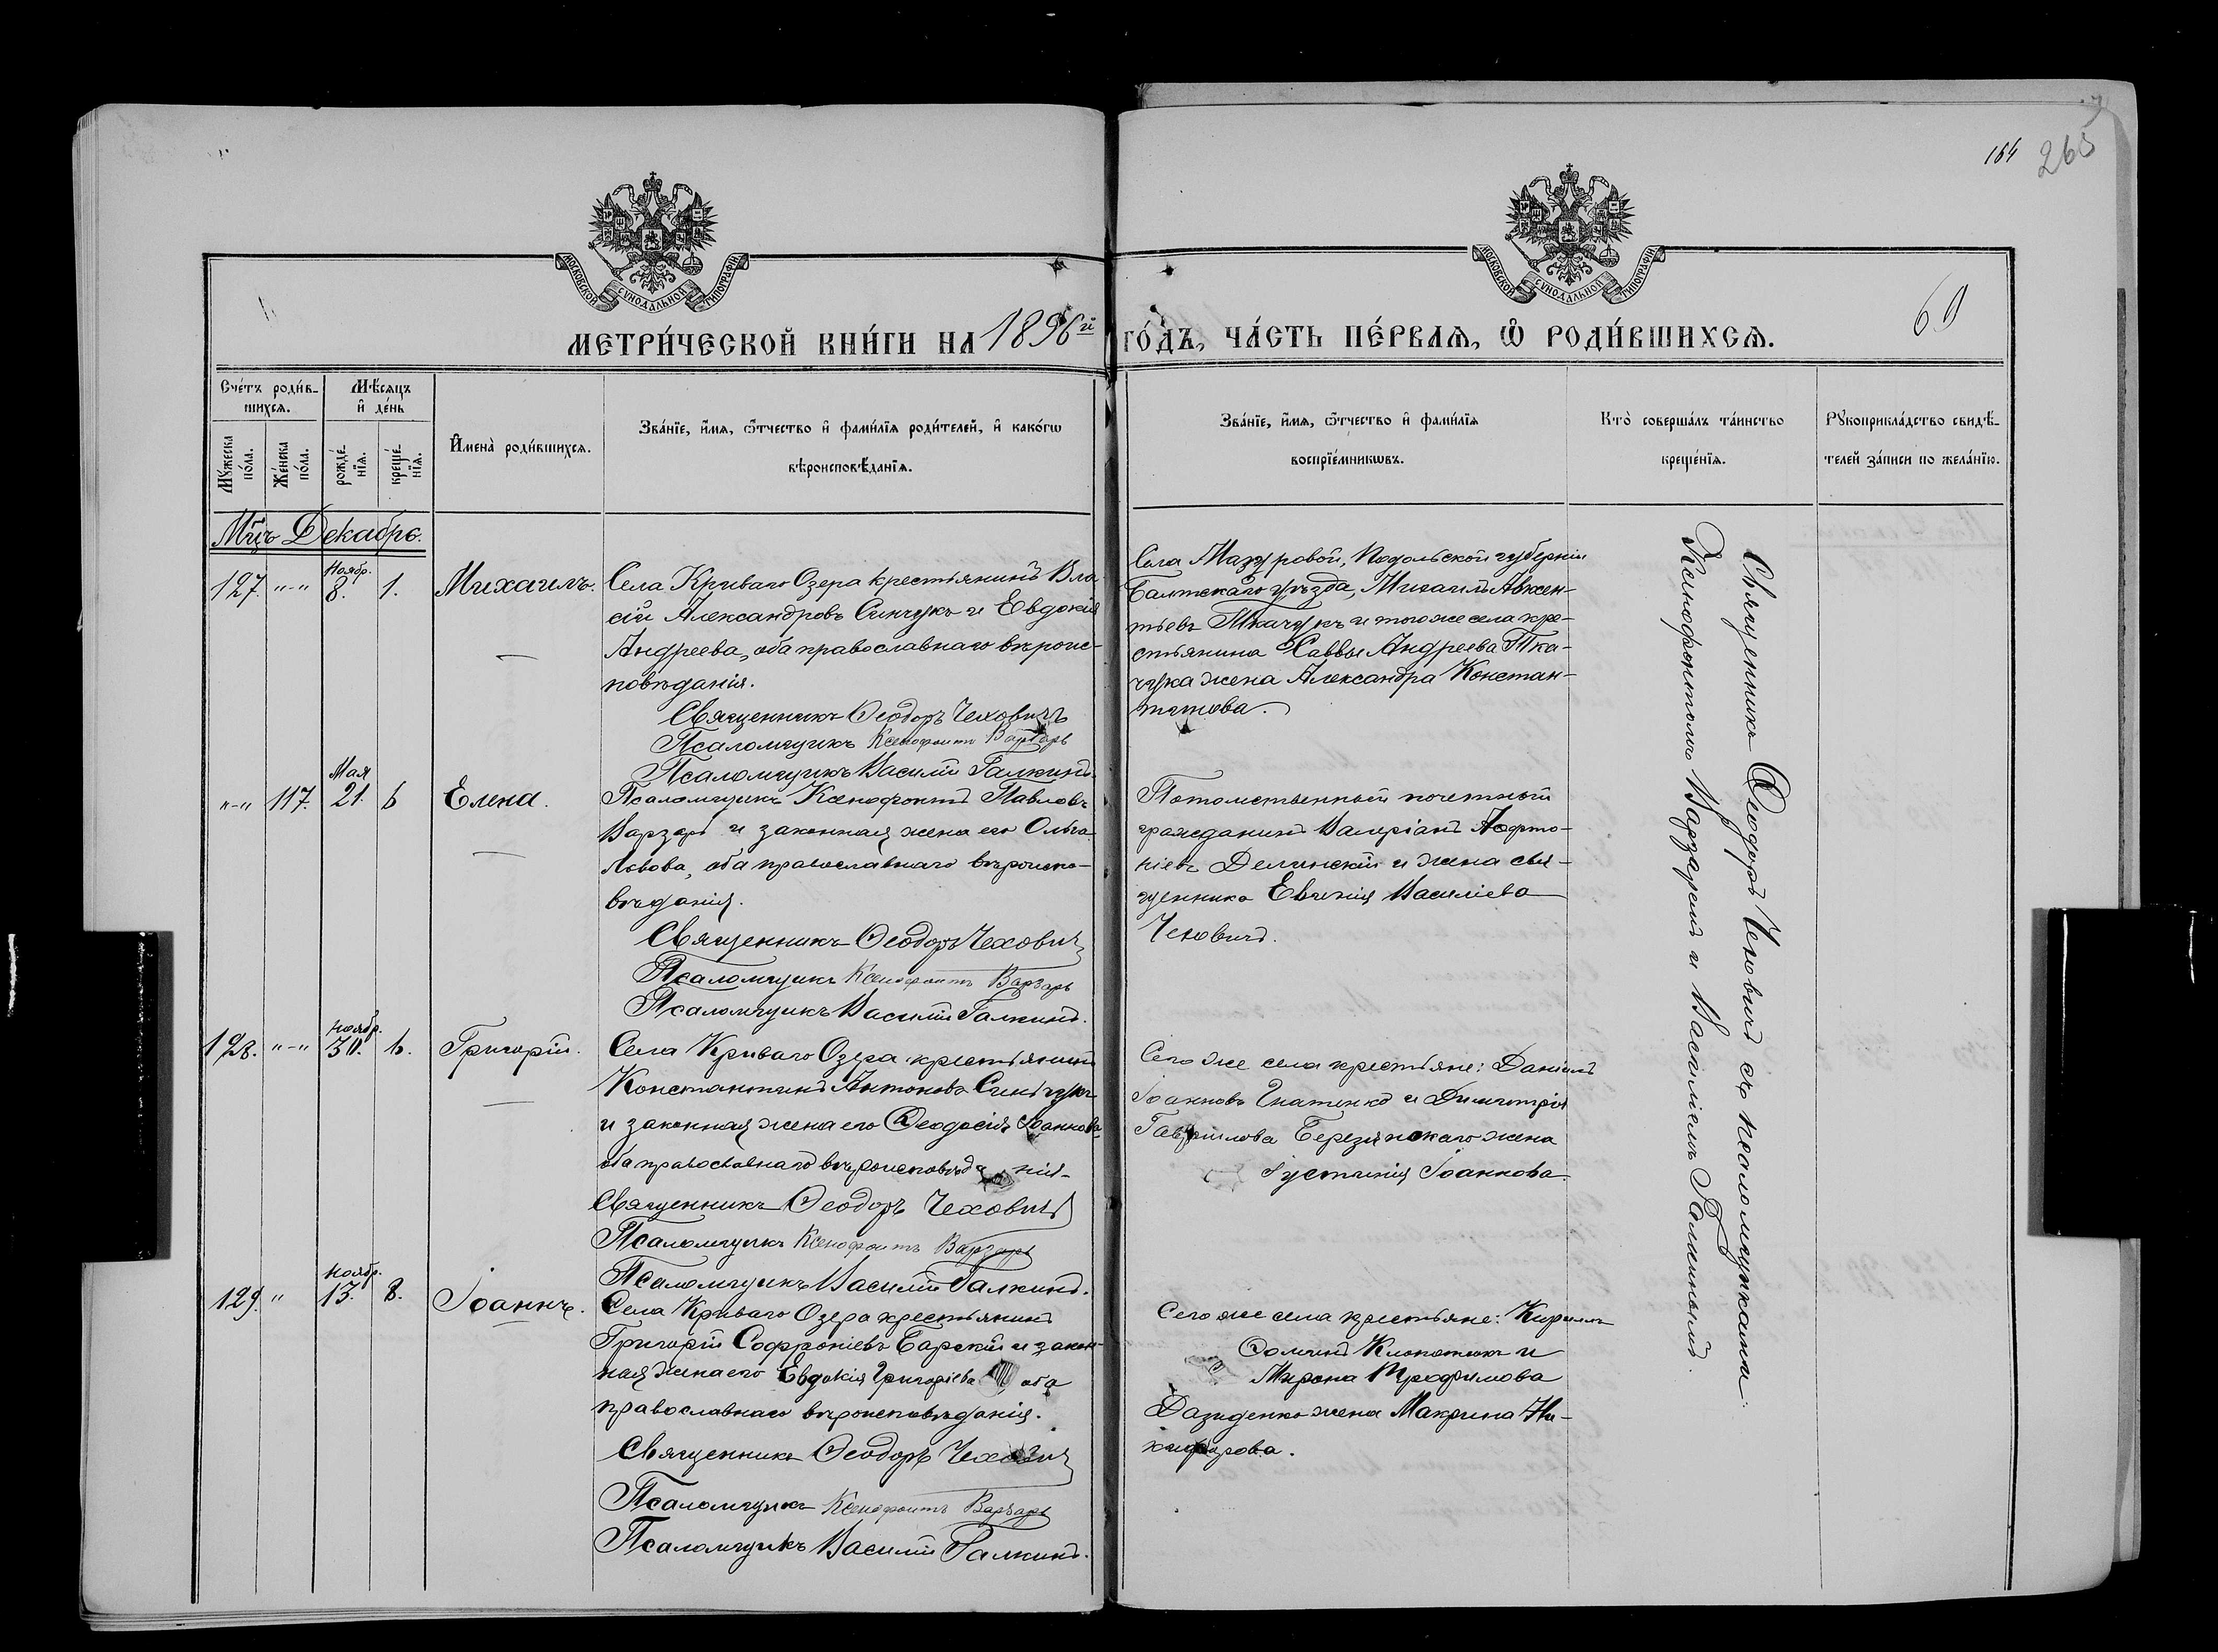 164
265
60
МОСКОВСКОЙ СѴНОДАЛЬНОЙ ТИПОГРАФІИ
МОСКОВСКОЙ СѴНОДАЛЬНОЙ ТИПОГРАФІИ
МЕТРИ́ЧЕСКОЙ КНИ́ГИ НА 1896й ГО́ДЪ, ЧА́СТЬ ПЕ́РВАѦ, Ѡ҆ РОДИ́ВШИХСѦ.
Сче́тъ роди́в-
шихсѧ.
Мꙋ́жеска по́ла.
Же́нска по́ла.
Мѣ́сѧцъ
и҆ де́нь
рожде́-
нїѧ.
креще́-
нїѧ.
И҆мена̀ роди́вшихсѧ.
Зва́нїе, и҆́мѧ, ѻ҆́тчество и҆ фами́лїѧ роди́телей, и҆ како́гѡ
вѣроисповѣ́данїѧ.
Зва́нїе, и҆́мѧ, ѻ҆́тчество и҆ фами́лїѧ
воспрїе́мникѡвъ.
Кто̀ соверша́лъ та́инство
креще́нїѧ.
Рꙋкоприкла́дство свидѣ́-
телей за́писи по жела́нїю.
Мцъ Декабрь.
127. "-" Ноябр. 8. 1. Михаилъ.
Села Криваго Озера крестьянинъ Вла-
сій Александровъ Синчукъ и Евдокія
Андреева, оба православнаго вѣроис-
повѣданія.
Священникъ Ѳеодоръ Чеховичъ
Псаломщикъ Ксенофонтъ Варзарь
Псаломщикъ Василій Галкинъ
Села Мазуровой, Подольской губерніи
Балтскаго уѣзда, Михаилъ Авксен-
тьевъ Ткачукъ и того же села кре-
стьянина Саввы Андреева Тка-
чука жена Александра Констан-
тинова.
"-" 117. Мая 21. 6 Елена.
Псаломщикъ Ксенофонтъ Павловъ
Варзарь и законная жена его Ольга
Львова, оба православнаго вѣроиспо-
вѣданія.
Священникъ Ѳеодоръ Чеховичъ
Псаломщикъ Ксенофонтъ Варзарь
Псаломщикъ Василій Галкинъ.
Потомственный почетный
гражданинъ Валеріанъ
Делинскій и жена свя-
щенника Евгенія Василіева
Чеховичъ.
128. "-" Ноябр. 30. 6. Григорій.
Села Криваго Озера крестьянинъ
Константинъ Антоновъ Синчукъ
и законная жена его Ѳеодосія Іоаннова
оба православнаго вѣроисповѣданія
Священникъ Ѳеодоръ Чеховичъ
Псаломщикъ Ксенофонтъ Варзарь
Псаломщикъ Василій Галкинъ.
Сего же села крестьяне: Даніилъ
Іоанновъ Игнатенко и Димитрія
Гавріилова Березянскаго жена
Іустинія Іоаннова.
129. " Ноябр. 13. 8. Іоаннъ.
Села Криваго Озера крестьянинъ
Григорій Софроніевъ Барскій и закон-
ная жена его Евдокія Григоріева оба
православнаго вѣроисповѣданія.
Священникъ Ѳеодоръ Чеховичъ
Псаломщикъ Ксенофонтъ Варзарь
Псаломщикъ Василій Галкинъ.
Сего же села крестьяне: Кириллъ
Ѳоминъ и
Мирона Трофимова
жена Макрина Ни-
кифорова.
Священникъ Ѳеодоръ Чеховичъ съ псаломщиками:
Ксенофонтомъ Варзаремъ и Василіемъ Галкинымъ.